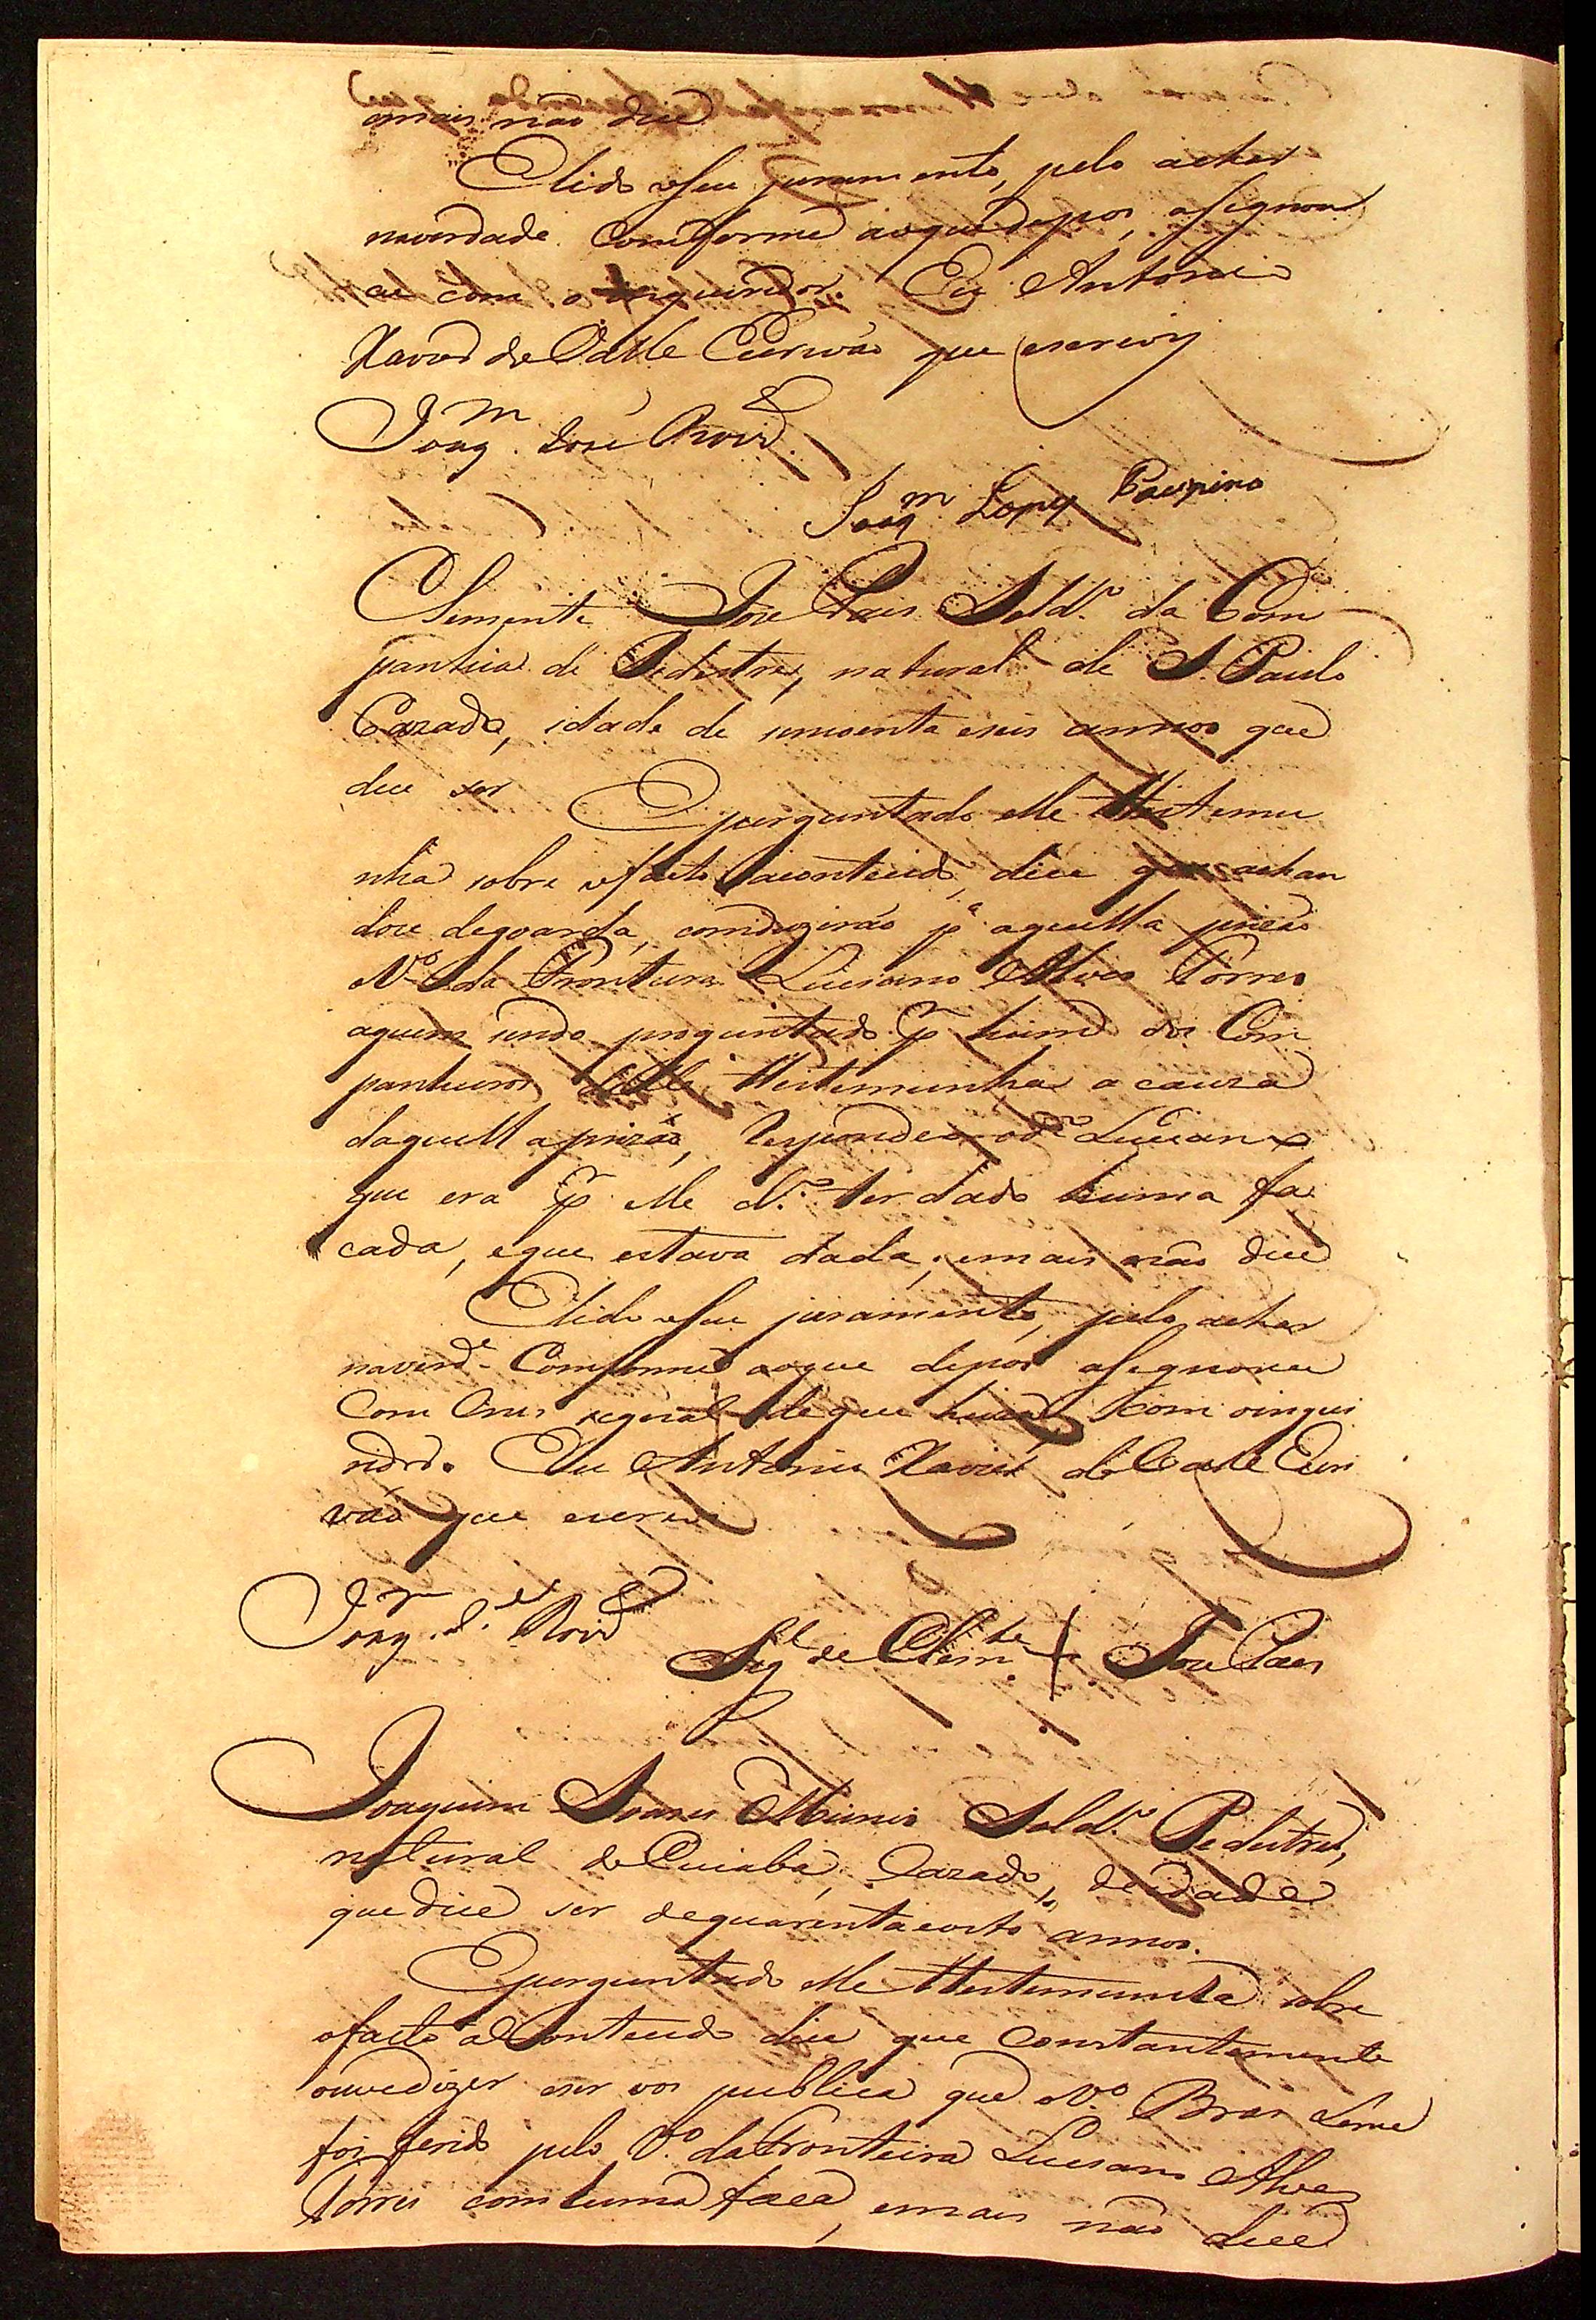 emais não dice
Elido oseu juramento, pelo achar
naverdade Comforme aoque depos, asignou
ce com o inqueridor. Eu Antonio
Xavier do Valle Escrivão que escrevy
Joaqm. Jose Roiz.
Joaqm Lopes Paupino
Clemente Jose Pais Soldo. da Com
panhia de Pedestres, natural de S. Paulo
Cazado, idade de sincoenta eseis annos que
dice ser Eperguntado elle Ttestemu
nha sobre ofacto acontecido, dice que achan
dose deguarda, comduzirão pa. aquella prizão
oVo. da Frontura Luciano Alves Torres
aquem sendo preguntado pr hum dos Com
panheiros delle Ttestemunha a cauza
daquella prizão, Respondeo odo. Luciano
que era pr elle do. ter dado huma fa
cada, eque estava dada, emais não dice
Elido oseu juramento, pelo achar
naverde. Comforme aoque depos asignouce
Com Crus signal deque huza, com oinque
ridor. Eu Antonio Xavier do Valle Escri
vão que escrevi
Joaqm. Je. Roiz
Sigl de Clemte + Joze Paes
Joaquim Soares Munis Soldo. Pedestre,
natural de Cuiabá, Cazado, deidade
que dice ser dequarentaeoito annos.
Eperguntado elle Ttestemunha sobre
ofacto aContecido dice que Constantemente
ouvedizer eser vos publica que oVo. Bras Leme
foi ferido pelo Vo. daFronteira Luciano Alves
Torres comhuma faca, emais não dice